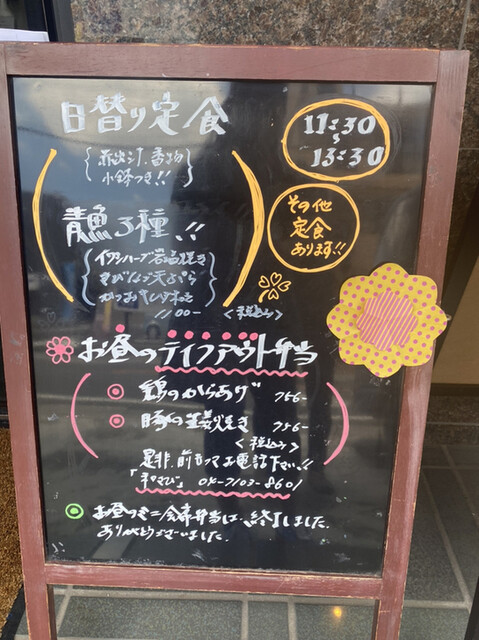 日替り定食
11:30
~
13:30
赤出汁.香物
小鉢つき!!
その他
定食
あります!!
青魚3種.!!
イワシハーブ岩塩焼き
きびなご天ぷら
1100-
<税込み>
お昼のテイクアウト弁当
鶏のからあげ 756-
豚の生姜焼き 756-
<税込み>
是非、前もってお電話下さい!!
04-7103-8601
お昼のミニ会席弁当は、終了しました.
ありがとうございました.